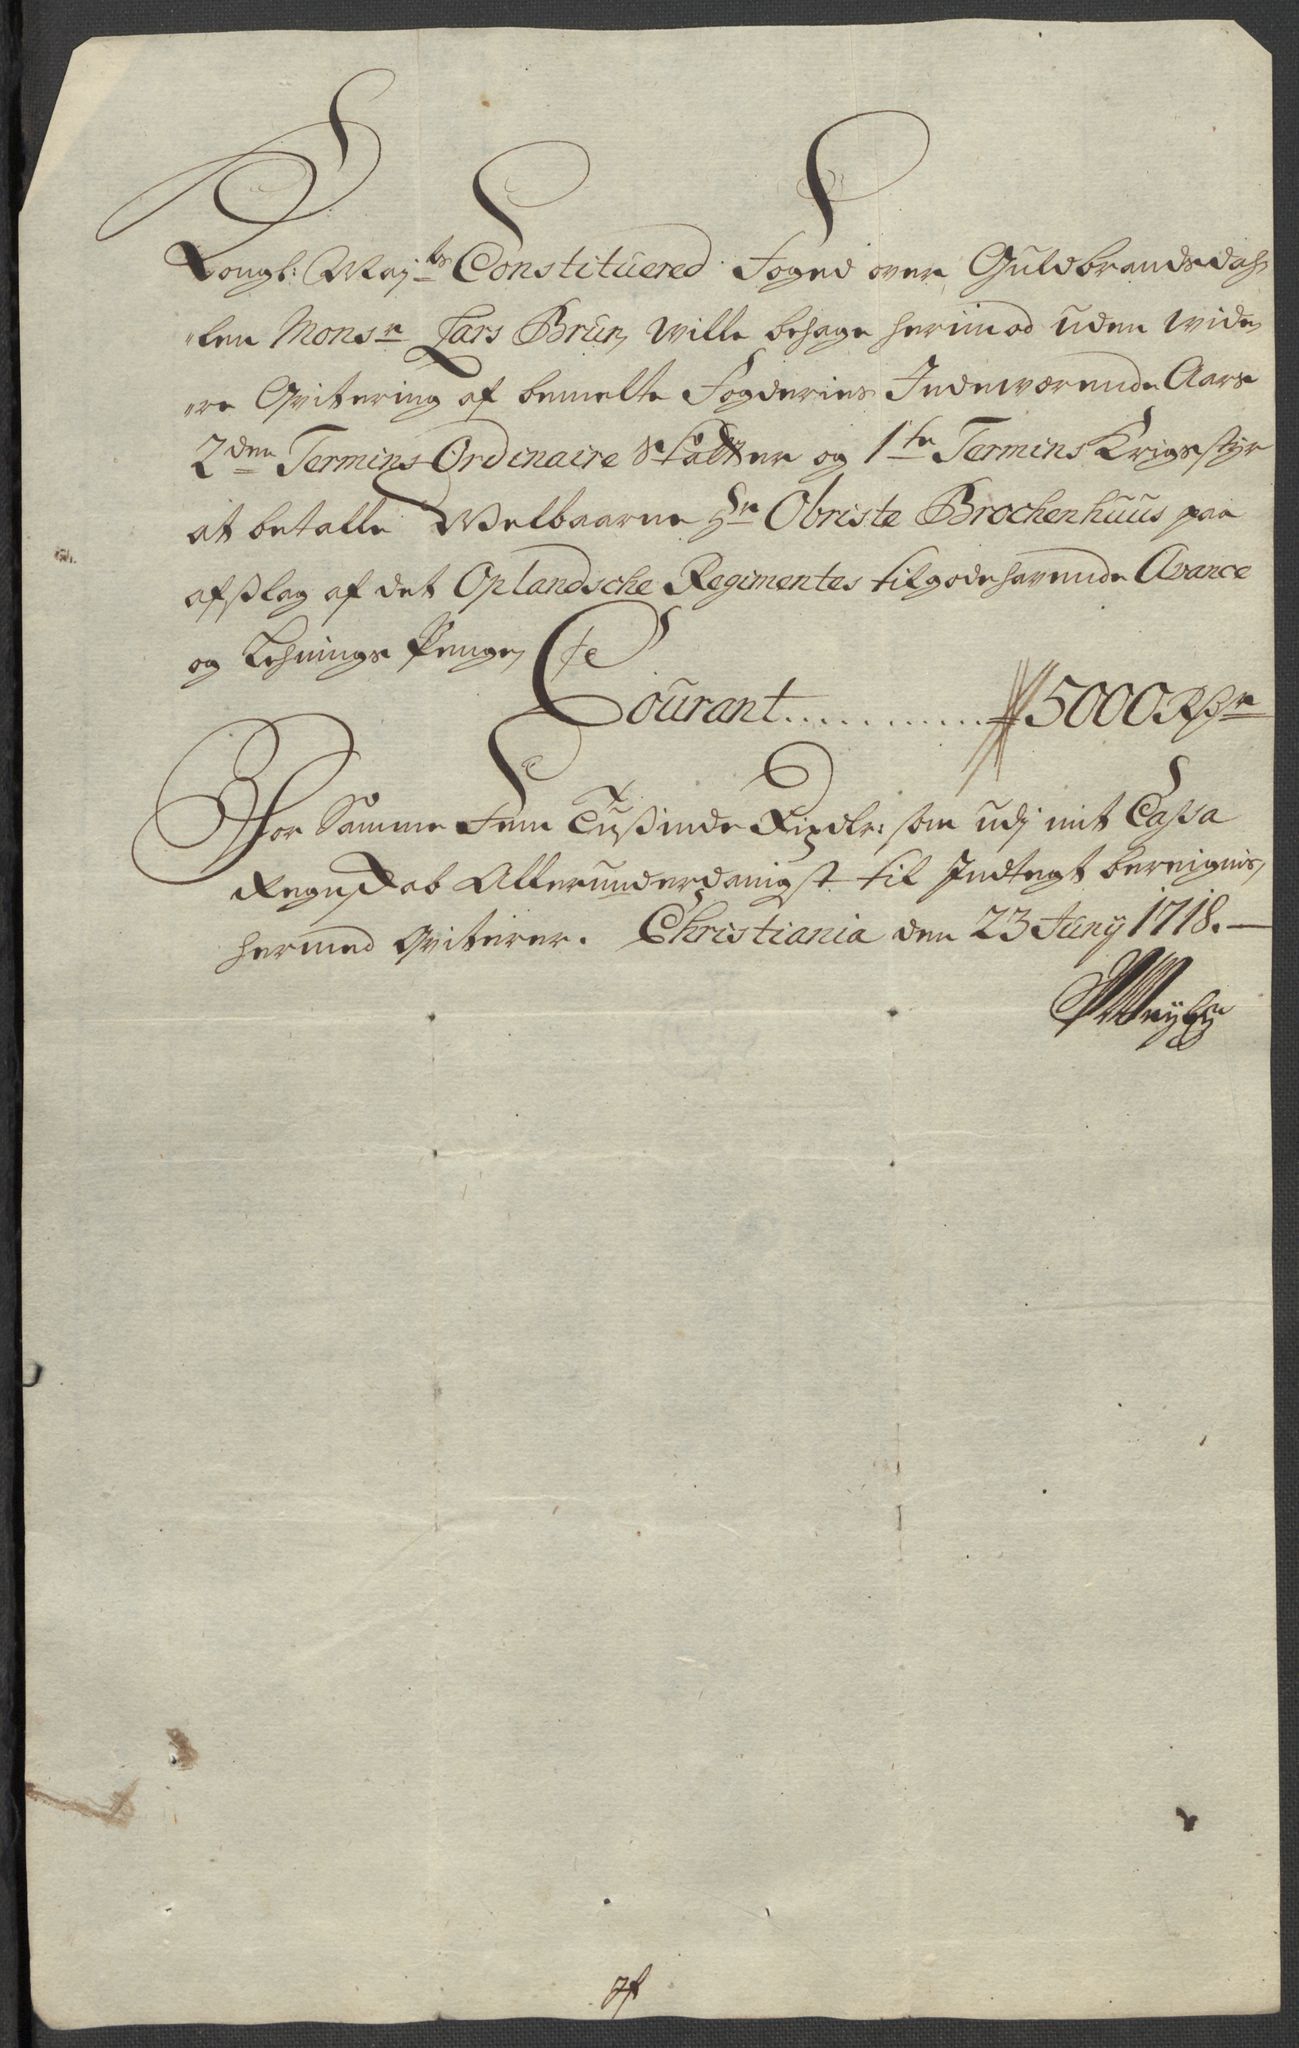 Kongl: Maj:ts Constituered Foged over Guldbrandsdah„
„len Monsr Lars Brun, wille behage herimod uden wide„
„re Qvitering af bemelte Fogderies Indeværende Aars
2den Termins Ordinaire Skatter og 1ste Termins Krigsstyr
at betalle Welbaarne Hr Obriste Brochenhuus paa
afslag af det Oplandsche Regimentes tilgodehavende Avance
og Lehnings Penge,
Courant............ 5000 Rdr
For Samme Fem Tusinde Rixdlr: som udj mit Cassa
Regnskab Allerunderdanigst til Indtegt bereignis,
hermed Qviterer. Christiania den 23 Juny 1718.